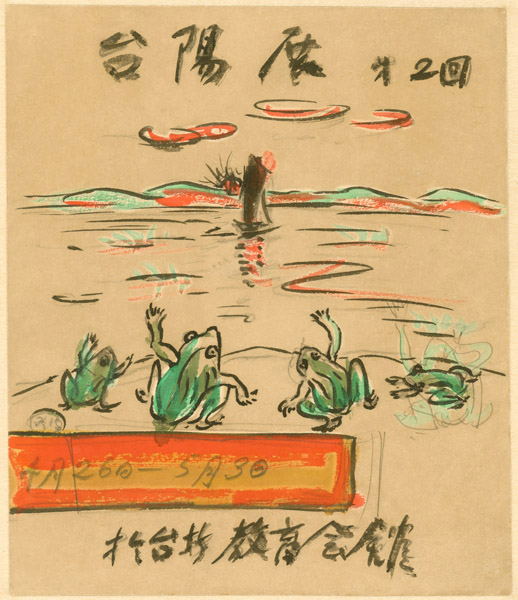 台陽展 第2回
4月26日－5月3日
於台北教育会館